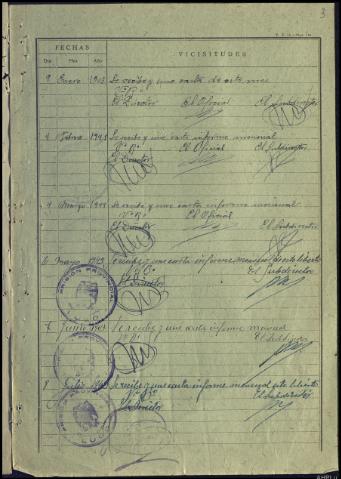 3
FECHAS
VICISITUDES
Día Mes Año
9 Enero 1943 Se recibe y une carta de este mes
Vº Bº
El Director El Oficial El Subdirector
4 Febro 1943 Se recibe y une carta informe mensual
Vº Bº El Oficial El Subdirector
El Director
4 Marzo 1943 Se recibe y une carta informe mensual
Vº Bº El Oficial
El Director El Subdirector
6 mayo 1943 Se recibe y une carta informe
Vº Bº El Subdirector
El Director
PRISION PROVINCIAL
LUGO
7 Junio 1943 Se recibe y une carta informe mensual
Vº Bº El Subdirector
PRISION PROVINCIAL
LUGO
8 Julio 1943 Se recibe y une carta informe mensual
Vº Bº El Subdirector
El Director
LUGO
AHPLU